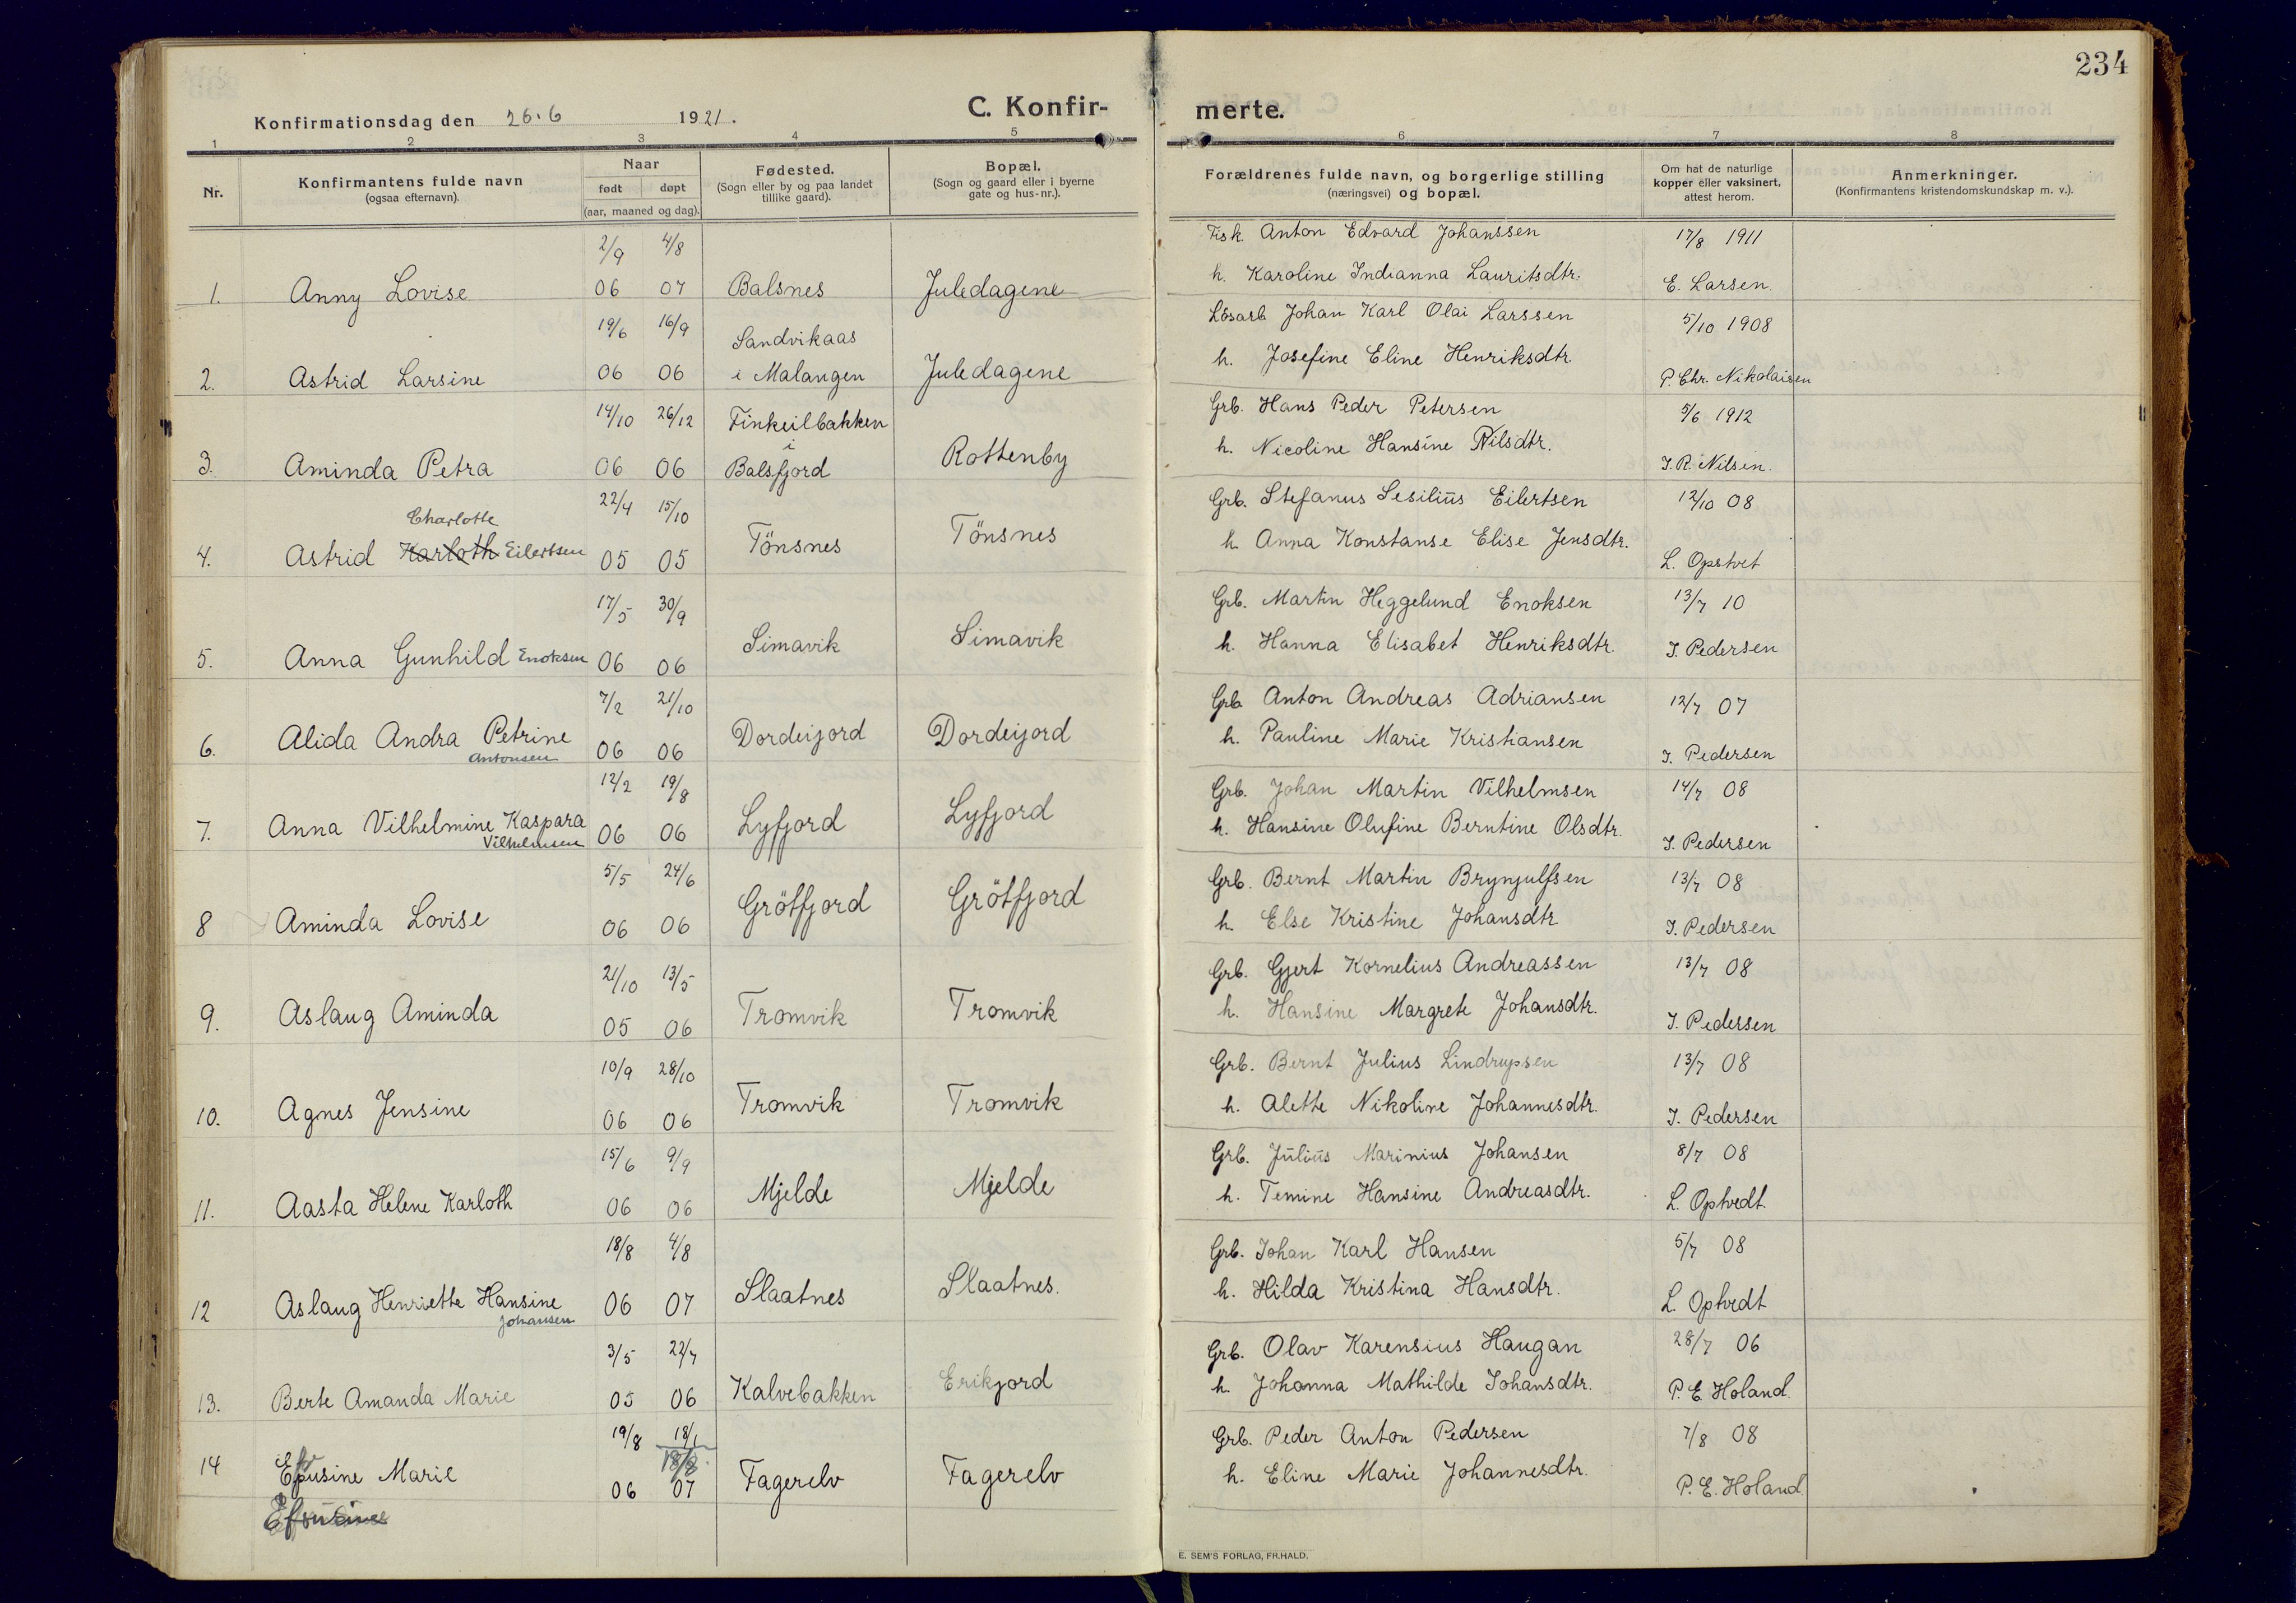 234
C. Konfir-
merte.
Konfirmationsdag den 26.6 1921.
1 2 3 4 5 6 7 8
Nr.
Konfirmantens fulde navn
(ogsaa efternavn).
Naar
født døpt
(aar, maaned og dag).
Fødested.
(Sogn eller by og paa landet
tillike gaard).
Bopæl.
(Sogn og gaard eller i byerne
gate og hus-nr.).
Forældrenes fulde navn, og borgerlige stilling
(næringsvei) og bopæl.
Om hat de naturlige
kopper eller vaksinert,
attest herom.
Anmerkninger.
(Konfirmantens kristendomskundskap m. v.).
2/9 4/8 Fisk. Anton Edvard Johanssen 17/8 1911
1. Anny Lovise 06 07 Balsnes Juledagene h. Karoline Indianna Lauritsdtr. E. Larsen.
19/6 16/9 Sandvikaas Lösarb Johan Karl Olai Larssen 5/10 1908
2. Astrid Larsine 06 06 i Malangen Juledagene h. Josefine Eline Henriksdtr. P. Chr. Nikolaisen
14/10 26/12 Finkeilbakken Grb. Hans Peder Petersen 5/6 1912
i
3. Aminda Petra 06 06 Balsfjord Rottenby h. Nicoline Hansine Nilsdtr. J. R. Nilsen.
22/4 15/10 Grb. Stefanus Sesilius Eilertsen 12/10 08
Charlotte
4. Astrid Karloth Eilertsen 05 05 Tönsnes Tönsnes h. Anna Konstanse Elise Jensdtr. L. Opstvet
17/5 30/9 Grb. Martin Heggelund Enoksen 13/7 10
5. Anna Gunhild Enoksen 06 06 Simavik Simavik h. Hanna Elisabet Henriksdtr. J. Pedersen
7/2 21/10 Grb Anton Andreas Adriansen 12/7 07
6. Alida Andra Petrine 06 06 Dordeijord Dordeijord h. Pauline Marie Kristiansen J. Pedersen
Antonsen
12/2 19/8 Grb. Johan Martin Vilhelmsen 14/7 08
7. Anna Vilhelmine Kaspara 06 06 Lyfjord Lyfjord h. Hansine Olufine Berntine Olsdtr. J. Pedersen
Vilhelmsen
5/5 24/6 Grb. Bernt Martin Brynjulfsen 13/7 08
8 Aminda Lovise 06 06 Grötfjord Grötfjord h. Else Kristine Johansdtr J. Pedersen
21/10 13/5 Grb. Gjert Kornelius Andreassen 13/7 08
9. Aslaug Aminda 05 06 Tromvik Tromvik h. Hansine Margrete Johansdtr. J. Pedersen
10/9 28/10 Grb. Bernt Julius Lindrupsen 13/7 08
10. Agnes Jensine 06 06 Tromvik Tromvik h. Alette Nikoline Johannesdtr. J. Pedersen
15/6 9/9 Grb. Julius Marinius Johansen 8/7 08
11. Aasta Helene Karloth 06 06 Mjelde Mjelde h. Temine Hansine Andreasdtr. L. Optvedt.
18/8 4/8 Grb. Johan Karl Hansen 5/7 08
12 Aslaug Henriette Hansine 06 07 Slaatnes Slaatnes. h. Hilda Kristina Hansdtr. L. Optvedt
Johansen
3/5 22/7 Grb. Olav Karensius Haugan 28/7 06
13. Berte Amanda Marie 05 06 Kalvebakken Erikjord h. Johanna Mathilde Johansdtr. P. E. Holand.
19/8 18/1 Grb. Peder Anton Pedersen 7/8 08
18/8.
14 Marie 06 07 Fagerelv Fagerelv h. Eline Marie Johannesdtr. P. E. Holand
E. SEM'S FORLAG, FR.HALD.